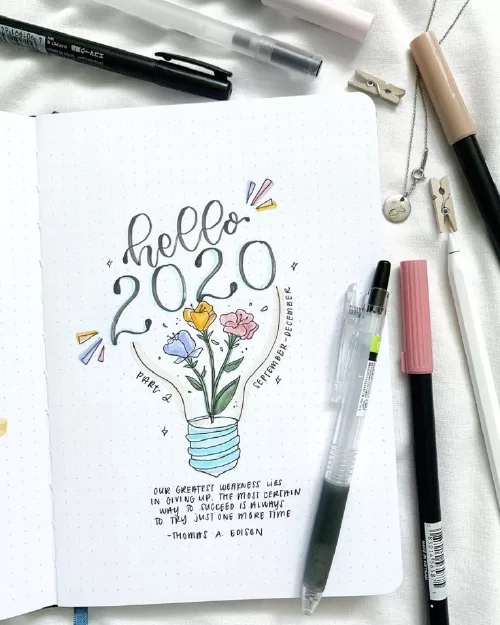 hello
2020
PART 2
SEPTEMBER-DECEMBER
OUR GREATEST WEAKNESS LIES
IN GIVING UP. THE MOST CERTAIN
WAY TO SUCCEED IS ALWAYS
TO TRY JUST ONE MORE TIME
-THOMAS A. EDISON